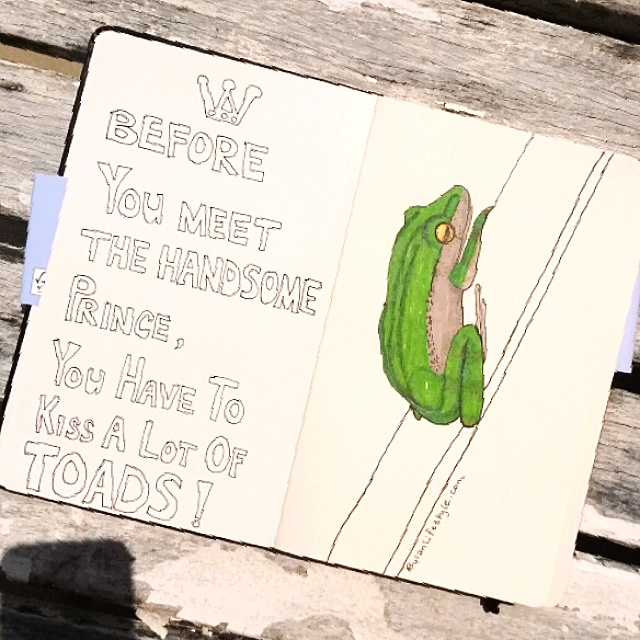 BEFORE
YOU MEET
THE HANDSOME
PRINCE,
YOU HAVE TO
KISS A LOT OF
TOADS!